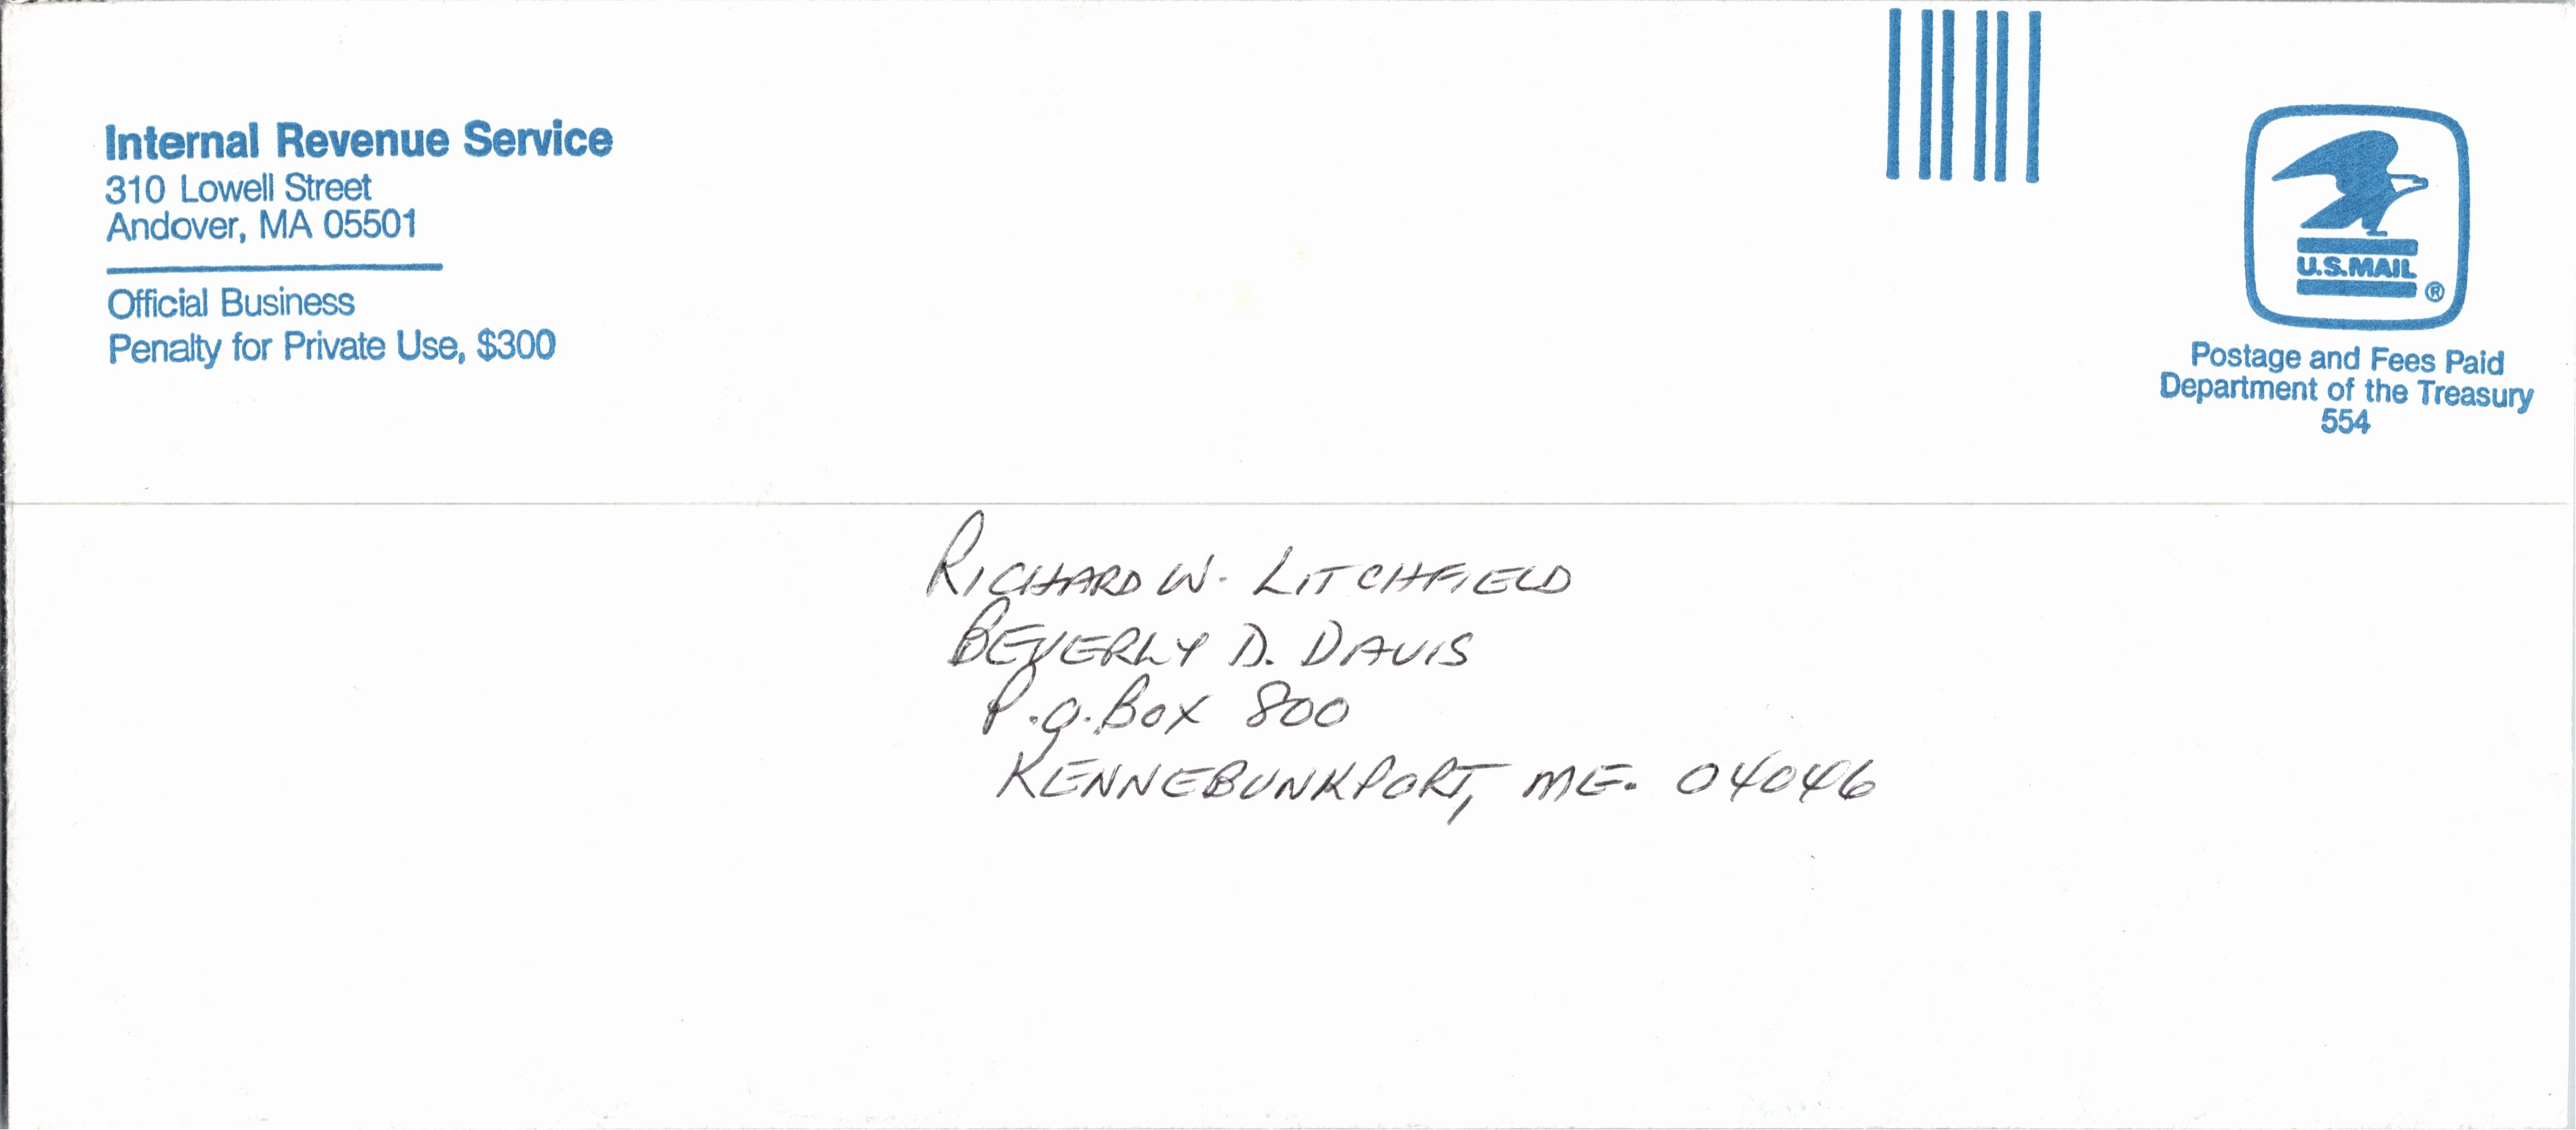 Internal Revenue Service
310 Lowell Street
Andover, MA 05501
Official Business
Penalty for Private Use, $300
U.S.MAIL ®
Postage and Fees Paid
Department of the Treasury
554
RICHARD W. LITCHFIELD
BEVERLY D. DAVIS
P.O. BOX 800
KENNEBUNKPORT, ME. 04046